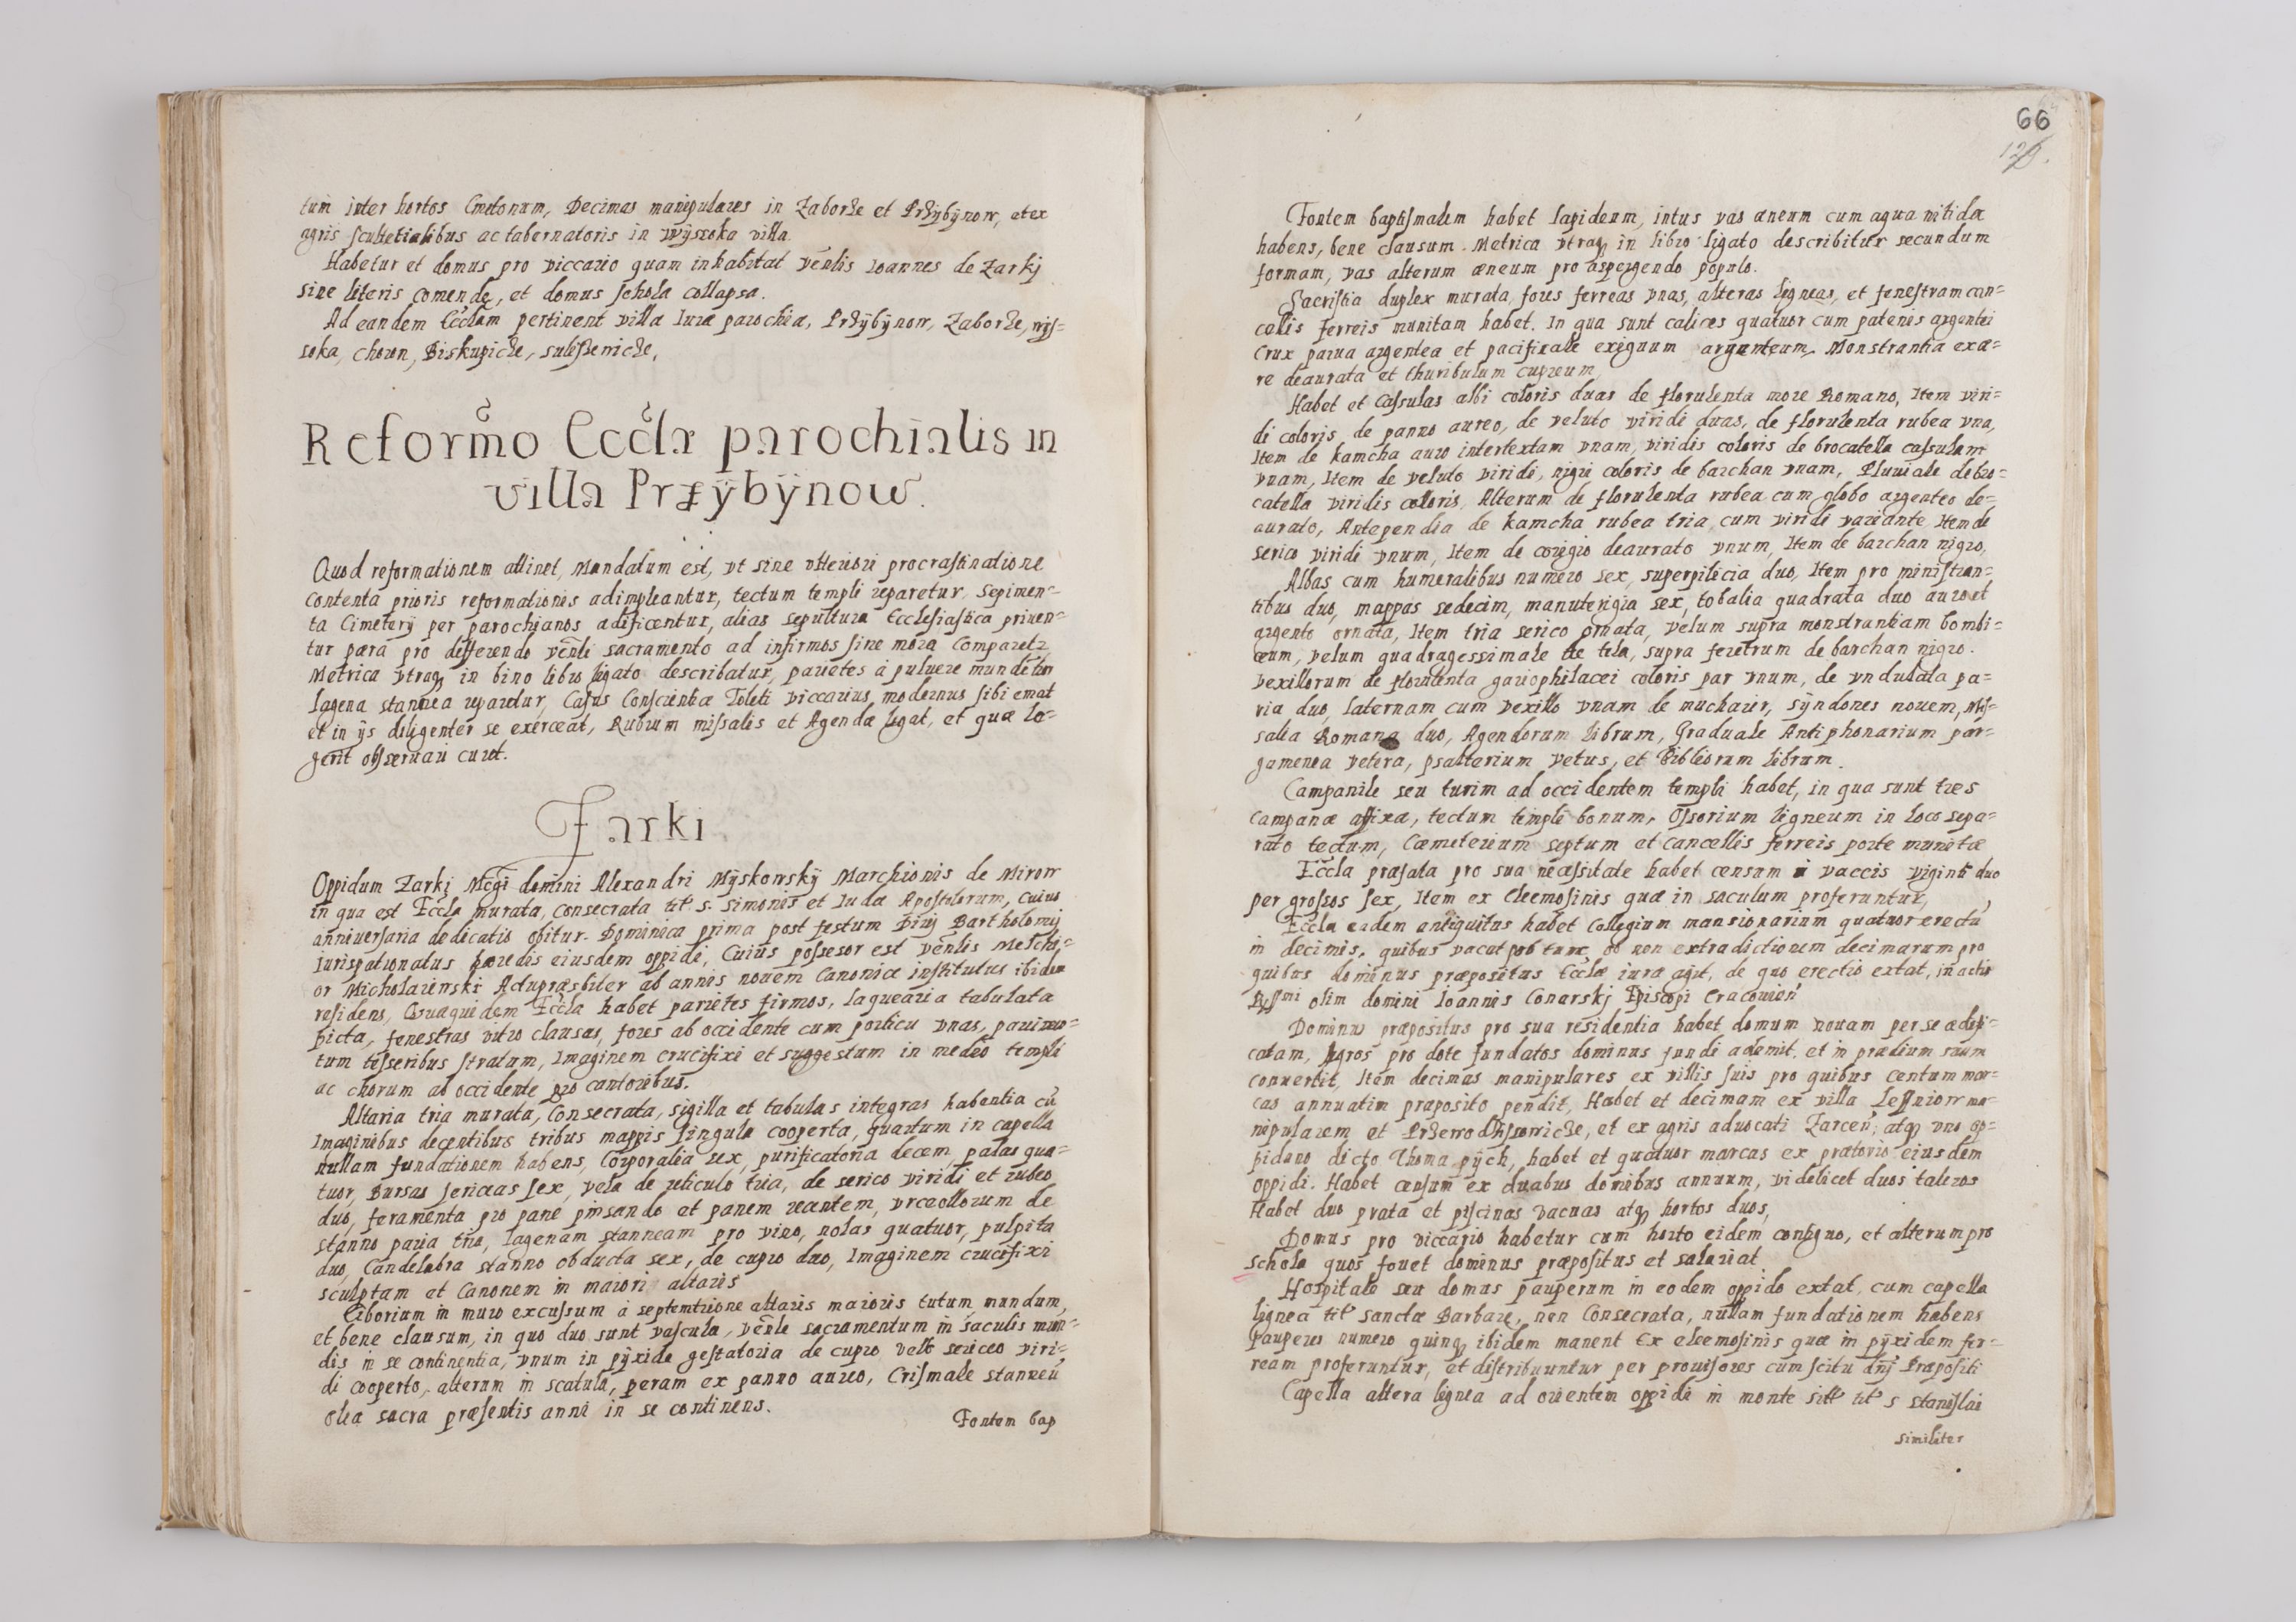 tum inter hortos Cmetonum, Decimas manipulares in Zaborze et Przÿbÿnow, et ex
agris scultetialibus ac tabernatoris in Wÿssoka villa.
Habetur et domus pro viccario quam inhabitat venlis Ioannes de Zarkj
sine literis comende, et domus schola collapsa.
Ad eandem Eccłam pertinent villa Iuræ parochiæ, Przÿbÿnow, Zaborze, Wÿs=
soka, choron, Biskupicze, suliszewicze,
Reformo Eccłæ parochialis in
villa Przÿbÿnow.
Quod reformationem attinet, Mandatum est, vt sine vlteriori procrastinatione
contenta prioris reformationis adimpleantur, tectum templi reparetur. Sepimen=
ta Cimeterÿ per parochianos ædificentur, alias sepultura Ecclesiastica priuen=
tur pæra pro defferendo venli sacramento ad infirmos sine mora Comparetr
Metrica vtraq in bino libro ligato describatur, parietes à puluere mundetur
lagena stannea reparetur, Casus Conscientiæ Toleti viccarius modernus sibi emat
et in ÿs diligenter se exerceat, Rubrum missalis et Agendæ legat, et quæ le=
gerit obseruari curet.
Zarki
Oppidum Zarkj Mcgi domini Alexandri Mÿskowskÿ Marchionis de Mirow
in qua est Eccła murata, consecrata titł s. Simonis et Iudæ Apostolorum, cuius
anniuersaria dedicatio obitur. Dominica prima post festum Diuj Bartholomej
Iurispationatus hæredis eiusdem oppidi, Cuius possesor est venlis Melchi=
or Micholaienski Actupræsbiter ab annis nouem Canonicæ institutus ibidem
residens, Quaequidem Eccła habet parietes firmos, laquearia tabulata
picta, fenestras vitro clausas, fores ab occidente cum porticu vnas, pauimen=
tum tesseribus stratum, Imaginem crucifixi et suggestum in medio templi
ac chorum ab occidente pro cantoribus.
Altaria tria murata, Consecrata, sigilla et tabulas integras habentia cu
Imaginibus decentibus tribus mappis singula cooperta, quartum in capella
nullam fundationem habens, Corporalia sex, purificatoria decem, palas qua=
tuor, Bursas sericeas sex, vela de reticulo tria, de serico viridi et rubeo
duo, feramenta pro pane pinsando et panem recantem, vrceollorum de
stanno paria tria, lagenam stanneam pro vino, nolas quatuor, pulpita
duo, Candelabra stanno obducta sex, de cupro duo, Imaginem crucifixi
sculptam et Canonem in maiori altaris
Ciborium in muro excussum à septemtrione altaris maioris tutum mundum,
et bene clausum, in quo duo sunt vascula, venle sacramentum in saculis mun=
dis in se continentia, vnum in pÿxide gestatoria de cupro velo sericeo viri=
di cooperto, alterum in scatula, peram ex panno aureo, Crismale stanneu
olea sacra præsentis anni in se continens.
Fontem bap
66
129.
Fontem baptismalem habet lapideum, intus vas æneum cum aqua nitida
habens, bene clausum. Metrica vtraq in libro ligato describitur secundum
formam, vas alterum æneum pro aspergendo populo.
Sacristia duplex murata, fores ferreas vnas, alteras ligneas, et fenestram can=
cellis ferreis munitam habet. In qua sunt calices quatuor cum patenis argentei
Crux parua argentea et pacificale exiguum argenteum. Monstrantia ex æ=
re deaurata et thuribulum cupreum
Habet et Casulas albi coloris duas de florulenta more Romano, Item viri=
di coloris de panno aureo, de veluto viridi duas, de florulenta rubea vna,
Item de kamcha auro intertextam vnam, viridis coloris de brocatella casulam
vnam, Item de veluto viridi, nigri coloris de barchan vnam, Pluuiale de bro=
catella viridis coloris, Alterum de florulenta rubea cum globo argenteo de=
aurato, Antependia de kamcha rubea tria cum viridi variante Item de
serico viridi vnum, Item de corigio deaurato vnum, Item de barchan nigro,
Albas cum humeralibus numero sex, superpilicia duo, Item pro ministran=
tibus duo, mappas sedecim, manutergia sex, tobalia quadrata duo auro et
argento ornata, Item tria serico ornata, velum supra monstrantiam bombi=
ceum, velum quadragessimale de tela, supra feretrum de barchan nigro.
Vexillorum de florulenta gariophilacei coloris par vnum, de vndulata pa=
ria duo, laternam cum vexillo vnam de muchaier, sÿndones nouem, Mis=
salia Romana duo, Agendorum librum, Graduale Antiphonarium par=
gamenea vetera, psalterium vetus, et Bibliorum librum.
Campanile seu turim ad occidentem templi habet, in qua sunt tres
campanæ affixæ, tectum templi bonum, Ossorium ligneum in loco sepa=
rato tectum, Cæmeterium septum et cancellis ferreis porte munitæ
Eccła præfata pro sua necessitate habet censum à vaccis viginti duo
per grossos sex, Item ex Eleemosinis quæ in saculum proferuntur,
Eccła eadem antiquitus habet Collegium mansionarium quatuor erectu
in decimis, quibus vacat ob non extradictionem decimarum pro
quibus dominus præpositus Eccłæ iure agit, de quo erectio extat, in actis
Rssmi olim domini Ioannis Conarskj Episcopi Cracouien
Dominus præpositus pro sua residentia habet domum nouam per se ædifi=
catam, Agros pro dote fundatos dominus fundi ademit, et in prædium suum
conuertit, Item decimas manipulares ex villis suis pro quibus centum mar=
cas annuatim præposito pendit, Habet et decimam ex villa Lesniow ma=
nipularem et Przewodziszowicze, et ex agris aduocati Zarcen, atq vno op=
pidano dicto Thoma pÿch, habet et quatuor marcas ex prætorio eiusdem
oppidi. Habet censum ex duabus domibus annuum, videlicet duos taleros
Habet duo prata et piscinas vacuas atq hortos duos,
Domus pro viccario habetur cum horto eidem contiguo, et alterum pro
schola quos fouet dominus præpositus et salariat
Hospitale seu domus pauperum in eodem oppido extat, cum capella
lignea titł sanctæ Barbare, non Consecrata, nullam fundationem habens
Pauperes numero quinq ibidem manent Ex eleemosinis quæ in pÿxidem fer=
ream proferuntur, et distribuuntur per prouisores cum scitu dnj Præpositi
Capella altera lignea ad orientem oppidi in monte sitł titł s Stanislai
Similiter